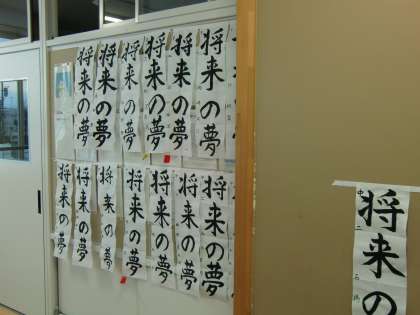 将来の夢
将来の夢
将来の夢
将来の夢
将来の夢
将来の夢
将来の夢
将来の夢
将来の夢
将来の夢
将来の夢
将来の夢
将来の夢
将来の
中二